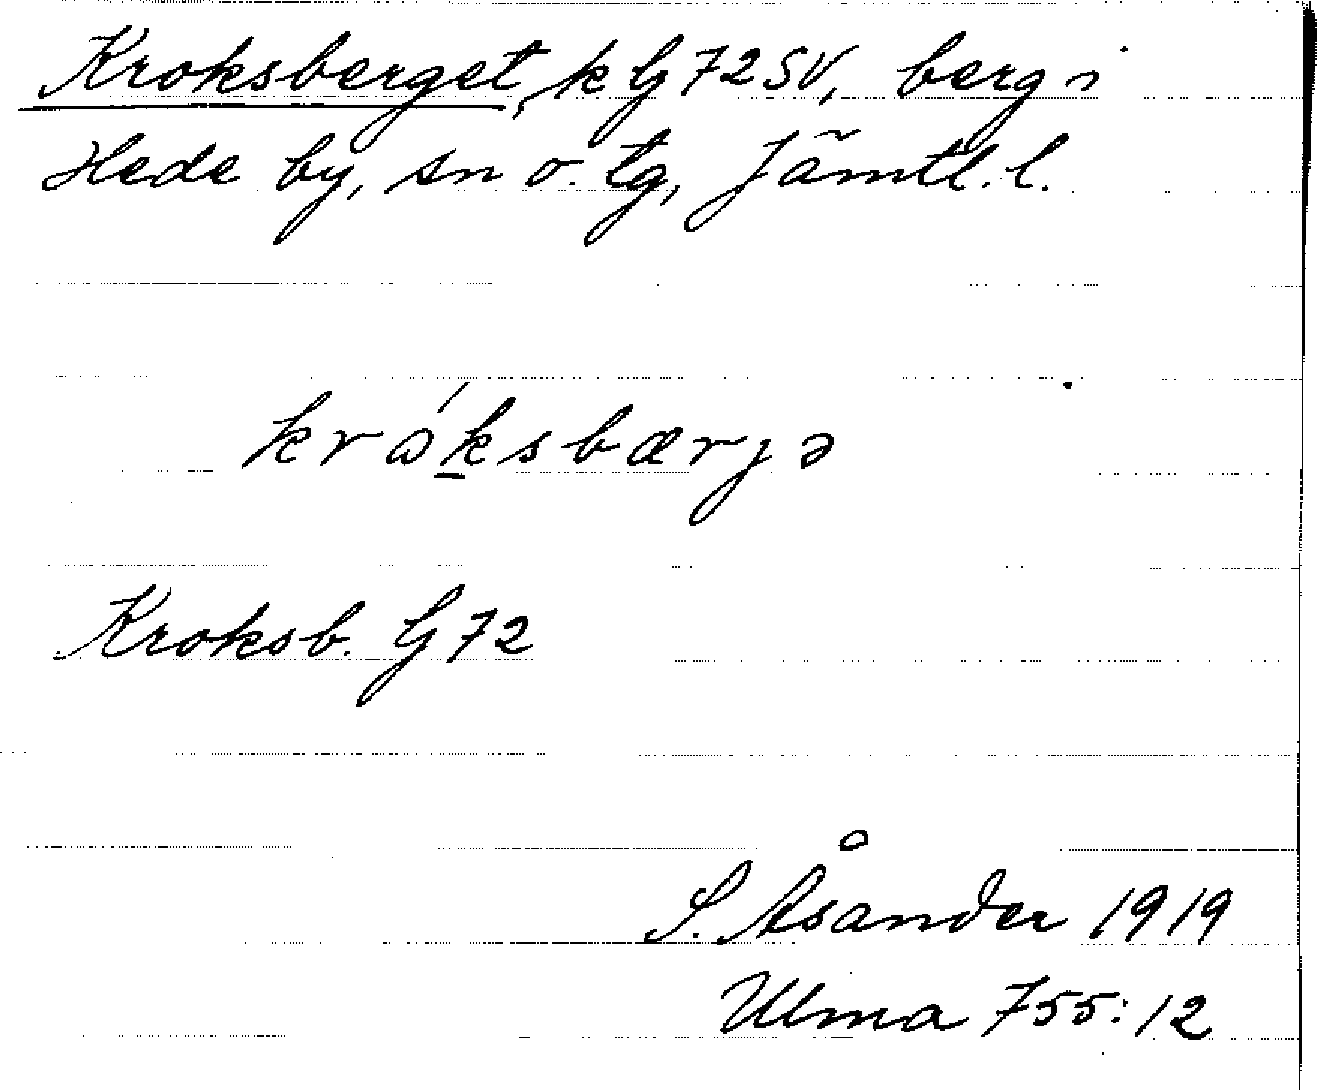 Kroksberget, k G 72 SV, berg i
Hede by, sn o. tg, Jämtl. l.
krɷ́ksbærjə
Kroksb. G 72
S. Åsander 1919
Ulma 755:12